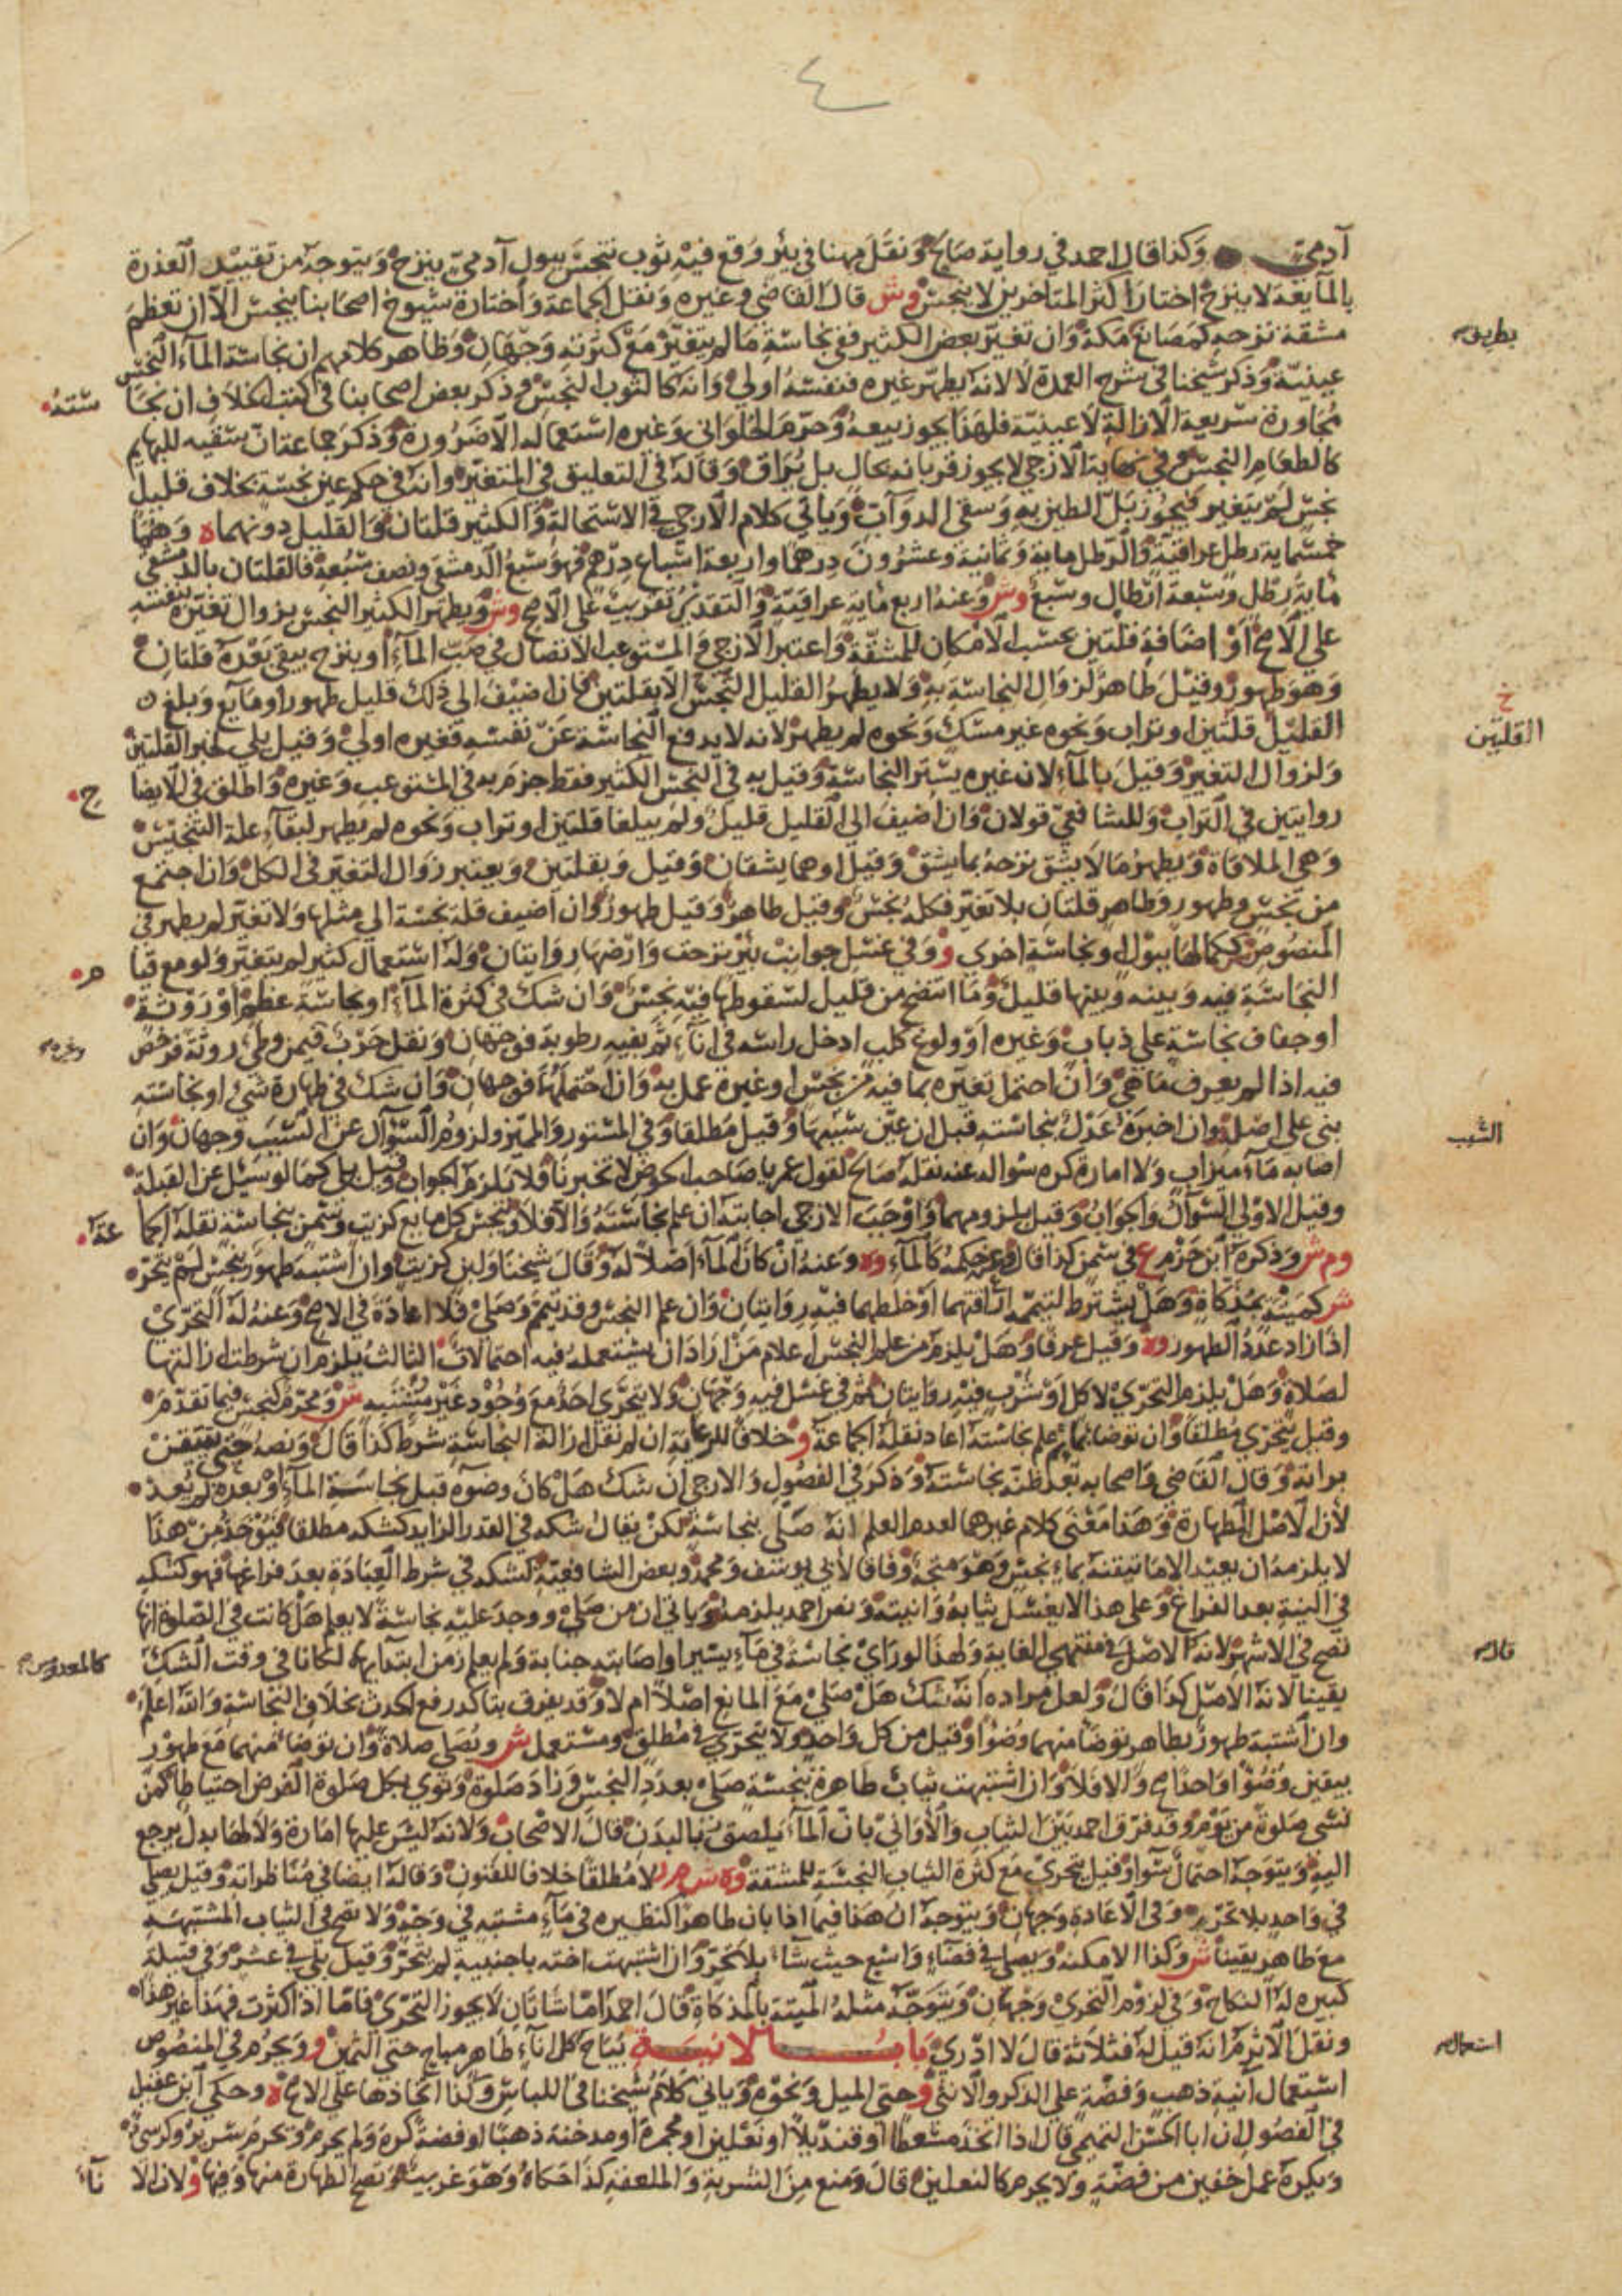 ٤
آدمي وكذا قال احمد في رواية صالح ونقل مهنا في بئر وقع فيه ثوب تنجس ببول آدمي ينزح ويتوجه من تقييد العذرة
بالمايعة لا ينزح اختاره اكثر المتاخرين لا ينجس وش قال القاضي وغيره ونقل الجماعة واختاره شيوخ اصحابنا ينجس الا ان تعظم
مشقة نزحه كمصانع مكة وان تغير بعض الكثير ففي نجاسة ما لم يتغير مع كثرته وجهان وظاهر كلامهم ان نجاسة المآء النجس
عينية وذكر شيخنا في شرح العمدة لا لانه يطهر غيره فنفسه اولى وانه كالثوب النجس وذكر بعض اصحابنا في كتب الخلاف ان نجا سته
مجاورة سريعة الازالة لا عينية فلهذا يجوز بيعه وحرم الحلواني وغيره استعماله الا ضرورة وذكر جماعة ان سقيه للبهايم
كالطعام النجس وفي نهاية الازجي لا يجوز قربانه بحال بل يراق وقاله في التعليق في المتغير وانه في حكم عين نجسة بخلاف قليل
نجس لم يتغير فيجوز بل الطين به وسقى الدوآب وياتي كلام الازجي في الاستحالة والكثير قلتان والقليل دونهما ه وهما
خمسماية رطل عراقية والرطل ماية وثمانية وعشرون درهما واربعة اسباع درهم فهو سبع الدمشقي ونصف سبعه فالقلتان بالدمشقي
ماية رطل وسبعة ارطال وسبع وش وعنه اربع ماية عراقية والتقدير تقريب على الاصح وش ويطهر الكثير النجس بزوال تغيره بنفسه
على الاصح او اضافة قلتين بحسب الامكان للمشقة واعتبر الازجي والمستوعب الاتصال في صب المآء او بنزح يبقى بعده قلتان
وهو طهور وقيل طاهر لزوال النجاسة به ولا يطهر القليل النجس الا بقلتين فان اضيف الى ذلك قليل طهور او مايع وبلغ
القليل قلتين او تراب ونحوه غير مسك ونحوه لم يطهر لانه لا يدفع النجاسة عن نفسه فغيره اولى وقيل بلى لخبر القلتين
ولزوال التغير وقيل بالمآء لان غيره يستر النجاسة وقيل به في النجس الكثير فقط جزم به في المستوعب وغيره واطلق في الايضا ح
روايتين في التراب وللشافعي قولان وان اضيف الى القليل قليل ولم يبلغا قلتين او تراب ونحوه لم يطهر لبقآء علة التنجيس
وهي الملاقاة ويطهر ما لا يشق نزحه بما يشق وقيل او هما يشقان وقيل وبقلتين ويعتبر زوال التغير في الكل وان اجتمع
من نجس وطهور وطاهر قلتان بلا تغير فكله نجس وقيل طاهر وقيل طهور وان اضيف قلة نجسة الى مثلها ولا تغير لم يطهر في
المنصوص ككمالها ببول او نجاسة اخرى و وفي غسل جوانب بئر نزحت وارضها روايتان وله استعمال كثير لم يتغير ولو مع قيا م
النجاسة فيه وبينه وبينها قليل وما انتضح من قليل لسقوطها فيه نجس وان شك في كثرة المآء او نجاسة عظم او روثة
او جفاف نجاسة على ذباب وغيره او ولوغ كلب ادخل راسه في انآء ثم بفيه رطوبة فوجهان ونقل حرب فيمن وطئ روثة فرخص
فيه اذا لم يعرف ما هي وان احتمل تغيره بما فيه من نجس او غيره عمل به وان احتملهما فوجهان وان شك في طهارة شئ او نجاسته
بنى على اصله وان اخبره عدل بنجاسته قبل ان عين سببها وقيل مطلقا وفي المستور والمميز ولزوم السؤال عن السبب وجهان وان
اصابه مآء ميزاب ولا امارة كره سؤاله عنه نقله صالح لقول عمر يا صاحب الحوض لا تخبرنا فلا يلزم الجواب وقيل بلى كما لو سئل عن القبلة
وقيل الاولى السؤال والجواب وقيل يلزومهما واوجب الازجي اجابته ان علم نجاسته والا فلا وينجس كل مايع كزيت وسمن بنجاسة نقله الجما عة
وم ش وذكره ابن حزم ع في سمن كذا قال وعنه حكمه كالمآء وه وعنه ان كان المآء اصلا له وقال شيخنا ولبن كزيت وان اشتبه طهور بنجس لم يتحر
ش كميتة بمذكاة وهل يشترط لتيممه اراقتهما او خلطهما فيه روايتان وان علم النجس وقد تيمم وصلى فلا اعادة في الاصح وعنه له التحري
اذا زاد عدد الطهور وه وقيل عرفا وهل يلزم من علم النجس اعلام من اراد ان يستعمله فيه احتمالات الثالث يلزم ان شرطت ازالتها
لصلاة وهل يلزم التحري لاكل او شرب فيه روايتان ثم في غسل فيه وجهان ولا يتحرى احد مع وجود غير مشتبه ش ومحرم كنجس فيما تقدم
وقيل يتحرى مطلقا وان توضا بما ثم علم نجاسته اعاد نقله الجماعة و خلافا للرعاية ان لم نقل ازالة النجاسة شرط كذا قال ونصه حتى يتيقن
براته وقال القاضي واصحابه بعد ظنه نجاسته وذكر في الفصول والازجي ان شك هل كان وضوه قبل نجاسة المآء او بعده لم يعد
لان الاصل الطهارة وهذا معنى كلام غيرهما لعدم العلم انه صلى بنجاسة لكن يقال شكه في القدر الزايد كشكه مطلقا فيؤخذ من هذا
لا يلزمه ان يعيد الا ما تيقنه بماء نجس وهو متجه وفاقا لابي يوسف ومحمد وبعض الشافعية لشكه في شرط العبادة بعد فراغها فهو كشكه
في النية بعد الفراغ وعلى هذا لا يغسل ثيابه وانيته ونص احمد يلزمه وياتي ان من صلى ووجد عليه نجاسة لا يعلم هل كانت في الصلوة انها
تصح في الاشهر لانه الاصل في منتهى الغاية ولهذا لو راى نجاسة في مآء يسير او اصابته جنابة ولم يعلم زمن ابتدآيهما لكانا في وقت الشك
يقينا لانه الاصل كذا قال ولعل مراده انه شك هل صلى مع المانع اصلا ام لا وقد يفرق بتاكد رفع الحدث بخلاف النجاسة والله اعلم
وان اشتبه طهور بطاهر توضا منهما وضوا وقيل من كل واحد ولا يتحرى في مطلق ومستعمل ش ويصلي صلاة وان توضا منهما مع طهور
بيقين وضوا واحدا صح والا فلا وان اشتبهت ثياب طاهرة بنجسة صلى بعدد النجس وزاد صلوة ونوى بكل صلوة الفرض احتياطا كمن
نسى صلوة من يوم وقد فرق احمد بين الثياب والاواني بان المآء يلصق بالبدن قال الاصحاب ولانه ليس عليها امارة ولا لها بدل يرجع
اليه ويتوجه احتمال سوا وقيل يتحرى مع كثرة الثياب النجسة للمشقة وه ش م ر لا مطلقا خلافا للفنون وقاله ايضا في مناظراته وقيل يصلى
في واحد بلا تحر وفي الاعادة وجهان ويتوجه ان هذا فيما اذا بان طاهرا كنظيره في مآء مشتبه في وجه ولا تصح في الثياب المشتبهة
مع طاهر يقينا ش وكذا الامكنة ويصلي في فضآء واسع حيث شآء بلا تحر وان اشتبهت اخته باجنبية لم يتحر وقيل بلى في عشر وفي قبيلة
كبيرة له النكاح وفي لزوم التحرى وجهان ويتوجه مثله الميتة بالمذكاة قال احمد اما شاتان لا يجوز التحرى فاما اذا كثرت فهذا غير هذا
ونقل الاثرم انه قيل له فثلاثة قال لا ادري باب الانية يباح كل انآء طاهر مباح حتى الثمين و ويحرم في المنصوص
استعمال آنية ذهب وفضة على الذكر والانثى و حتى الميل ونحوه وياتي كلام شيخنا في اللباس وكذا اتخاذها على الاصح ه وحكى ابن عقيل
في الفصول ان ابا الحسن التميمي قال اذا اتخذ مسعطا او قنديلا او نعلين او مجمرة او مدخنة ذهبا او فضة كره ولم يحرم ويحرم سرير وكرسي
ويكره عمل خفين من فضة ولا يحرم كالنعلين قال ومنع من الشربة والملعقة كذا حكاه وهو غريب وتصح الطهارة منها وفيها و لان الا نآء
القلتين
خ
السبب
استعمال